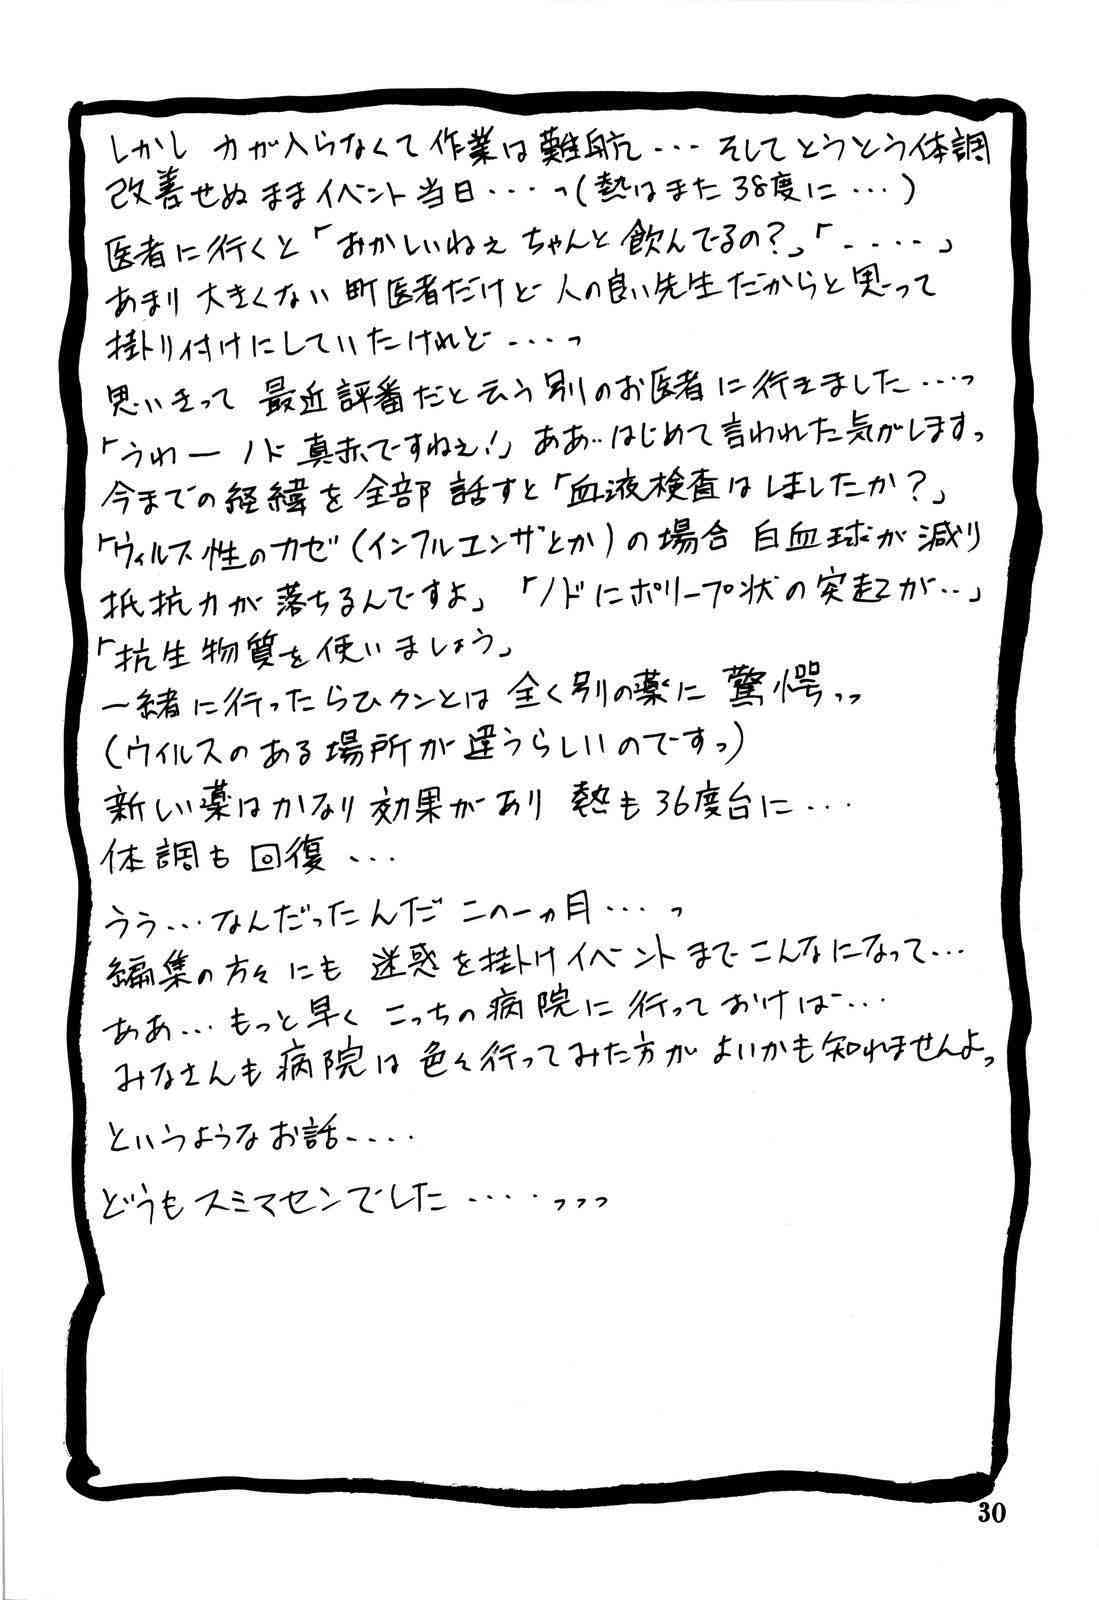 しかし 力が入らなくて作業は難航・・・ そしてとうとう体調
改善せぬままイベント当日・・・・っ(熱はまた38度に・・・)
医者に行くと「おかしいねぇ ちゃんと飲んでるの?」「・・・・・」
あまり大きくない町医者だけど人の良い先生だからと思って
掛かり付けにしていたけれど・・・・っ
思いきって 最近評番だと云う別のお医者に行きました・・・っ
「うわー ノド真赤ですねぇ!」ああ‥はじめて言われた気がしますっ
今までの経緯を全部 話すと「血液検査はしましたか?」
「ウィルス性のカゼ(インフルエンザとか)の場合 白血球が減り
抵抗力が落ちるんですよ」「ノドにポリープ状の突起が‥」
「抗生物質を使いましょう」
一緒に行ったらひクンとは 全く別の薬に 驚愕っっ
(ウイルスのある場所が違うらしいのですっ)
新しい薬はかなり効果があり 熱も36度台に・・・
体調も回復・・・
うう・・・なんだったんだ この一ヵ月・・・・っ
編集の方々にも 迷惑を掛けイベントまでこんなになって・・・
ああ・・・もっと早く こっちの病院に行っておけば・・・
みなさんも病院は色々行ってみた方がよいかも知れませんよっ
というようなお話・・・・
どうもスミマセンでした・・・・っっっ
30